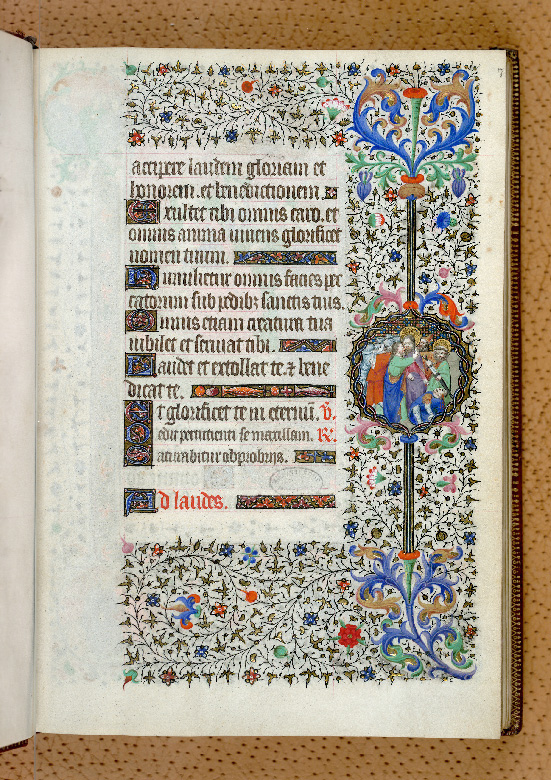 accipere laudem gloriam et
honorem. et benedictionem.
Exultet tibi omnis caro. et
omnis anima vivens glorificet
nomen tuum.
Humilietur omnis facies pec
catorum sub pedibus sanctis tuis.
Omnis etiam creatura tua
iubilet et serviat tibi.
Laudet et extollat te. et bene
dicat te.
Et glorificet te in eternum. V.
Dedit percutienti se maxillam. R.
Saturabitur obprobriis.
Ad laudes.